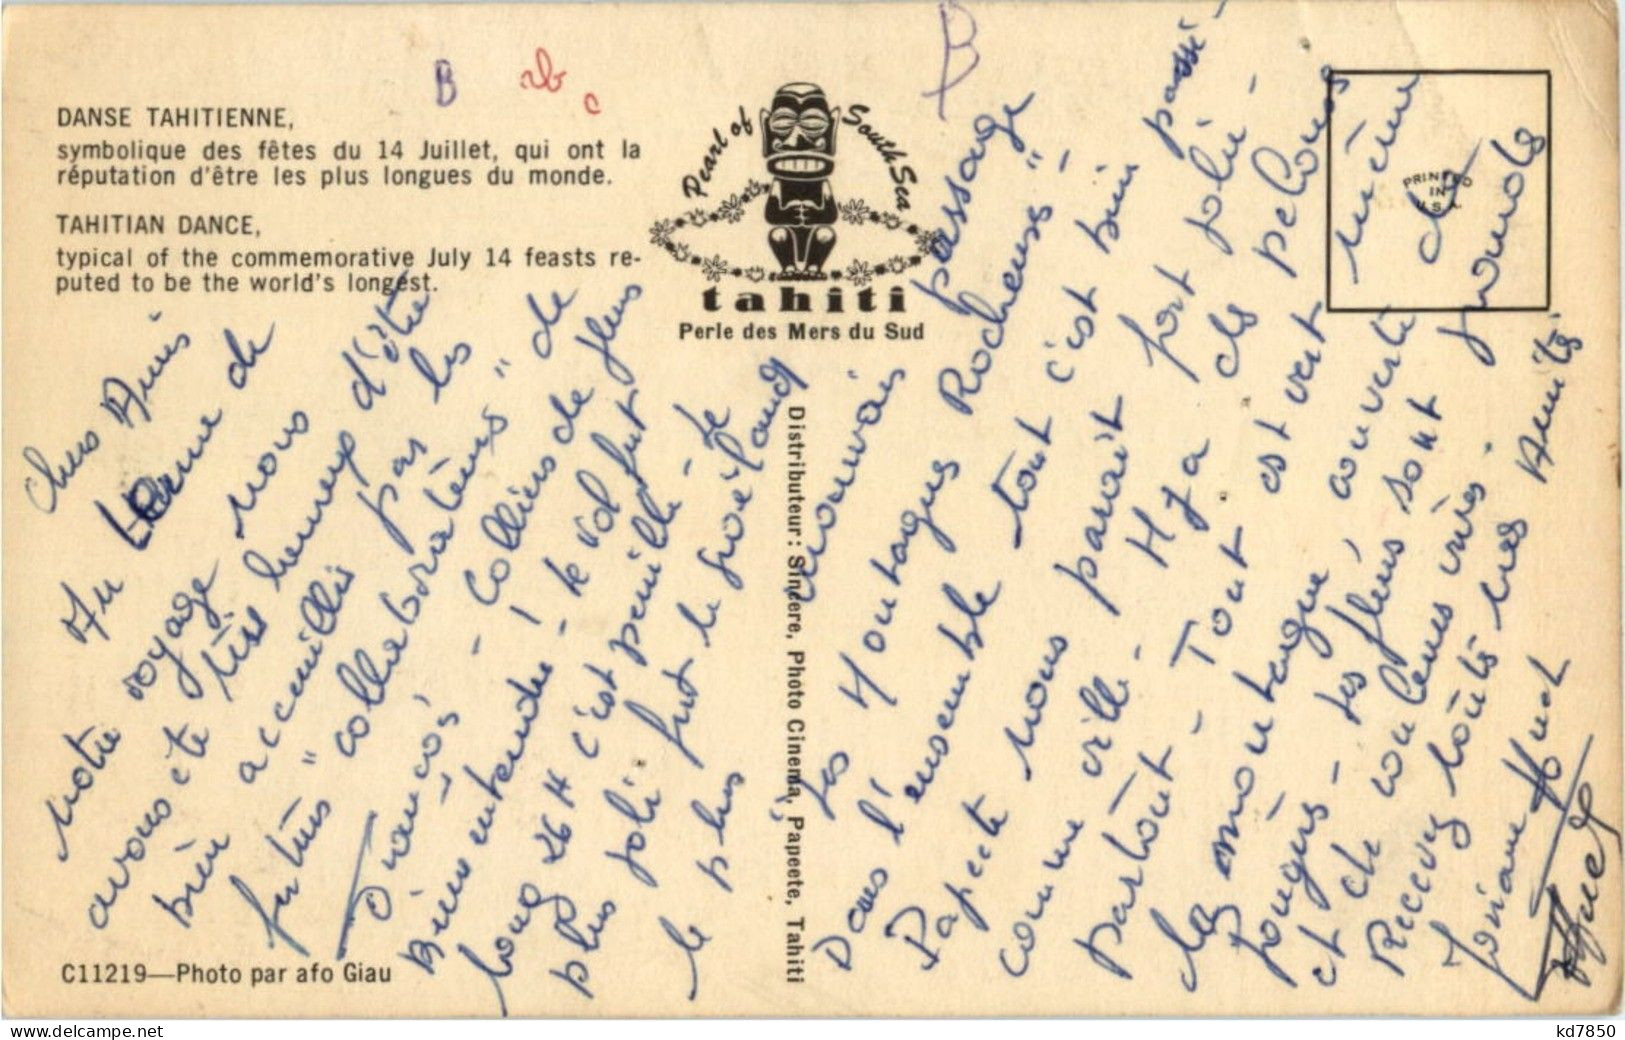 DANSE TAHITIENNE,
symbolique des fêtes du 14 Juillet, qui ont la
réputation d'être les plus longues du monde.
TAHITIAN DANCE,
typical of the commemorative July 14 feasts re-
puted to be the world's longest.
B
c
B
Pearl of South Sea
tahiti
Perle des Mers du Sud
PRINTED
IN
U.S.A.
Chers Amis
Au terme de
notre voyage nous
avons été très heureux d'être
bien accueillis par les
futurs "collaborateurs" de
François - Colliers de fleurs
Bien entendu ! Le vol fut
long 26 H c'est pénible - Le
plus joli fut le Groënland
le plus
mauvais passage
Les Montagnes Rocheuses" -
Dans l'ensemble tout c'est bien passé -
Papeete nous paraît fort jolie -
comme ville - Il y a des pelouses
partout - Tout est vert même
les montagne couverte de
fougères - les fleurs sont grandes
et de couleurs vives -
Recevez toutes nos Amitiés
Josiane
C11219—Photo par afo Giau
Distributeur: Sincere, Photo Cinema, Papeete, Tahiti
kd7850